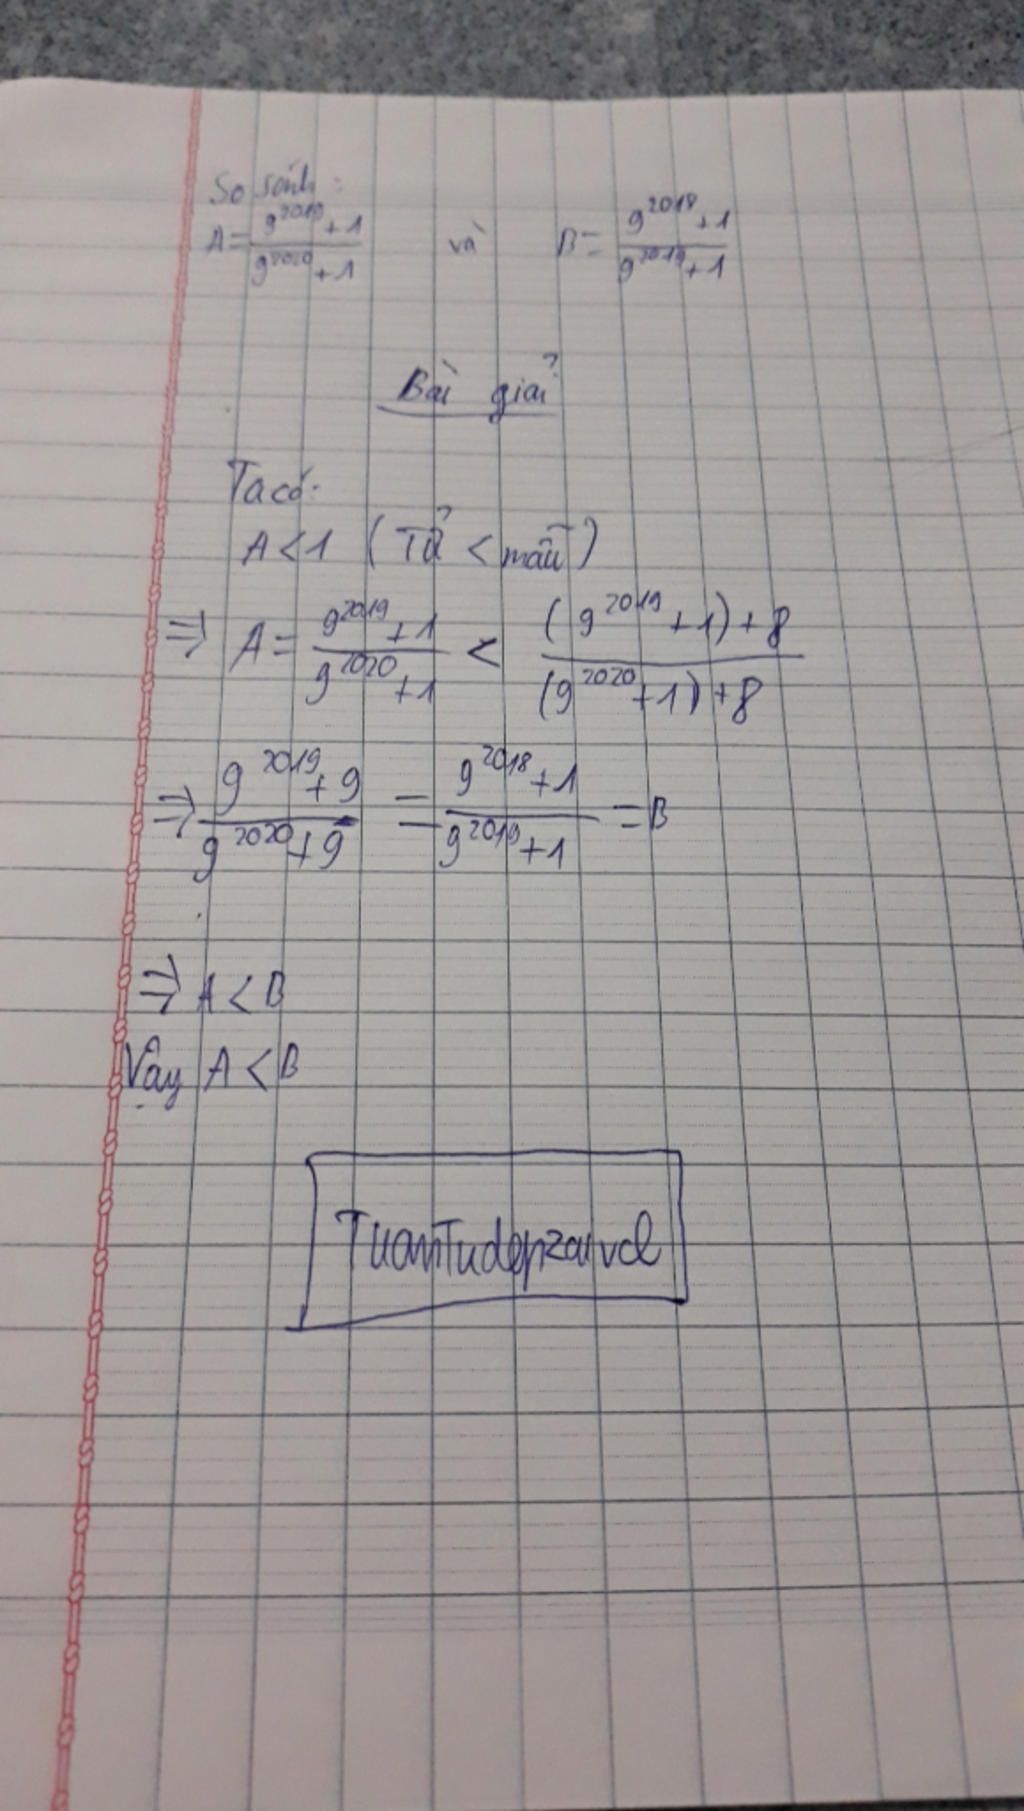 So sánh:
A = \frac{9^{2019}+1}{9^{2020}+1} và B = \frac{9^{2018}+1}{9^{2019}+1}
Bài giải
Ta có:
A < 1 (Tử < mẫu)
⇒ A = \frac{9^{2019}+1}{9^{2020}+1} < \frac{(9^{2019}+1)+8}{(9^{2020}+1)+8}
⇒ \frac{9^{2019}+9}{9^{2020}+9} = \frac{9^{2018}+1}{9^{2019}+1} = B
⇒ A < B
Vậy A < B
TuanTudepzaivcl